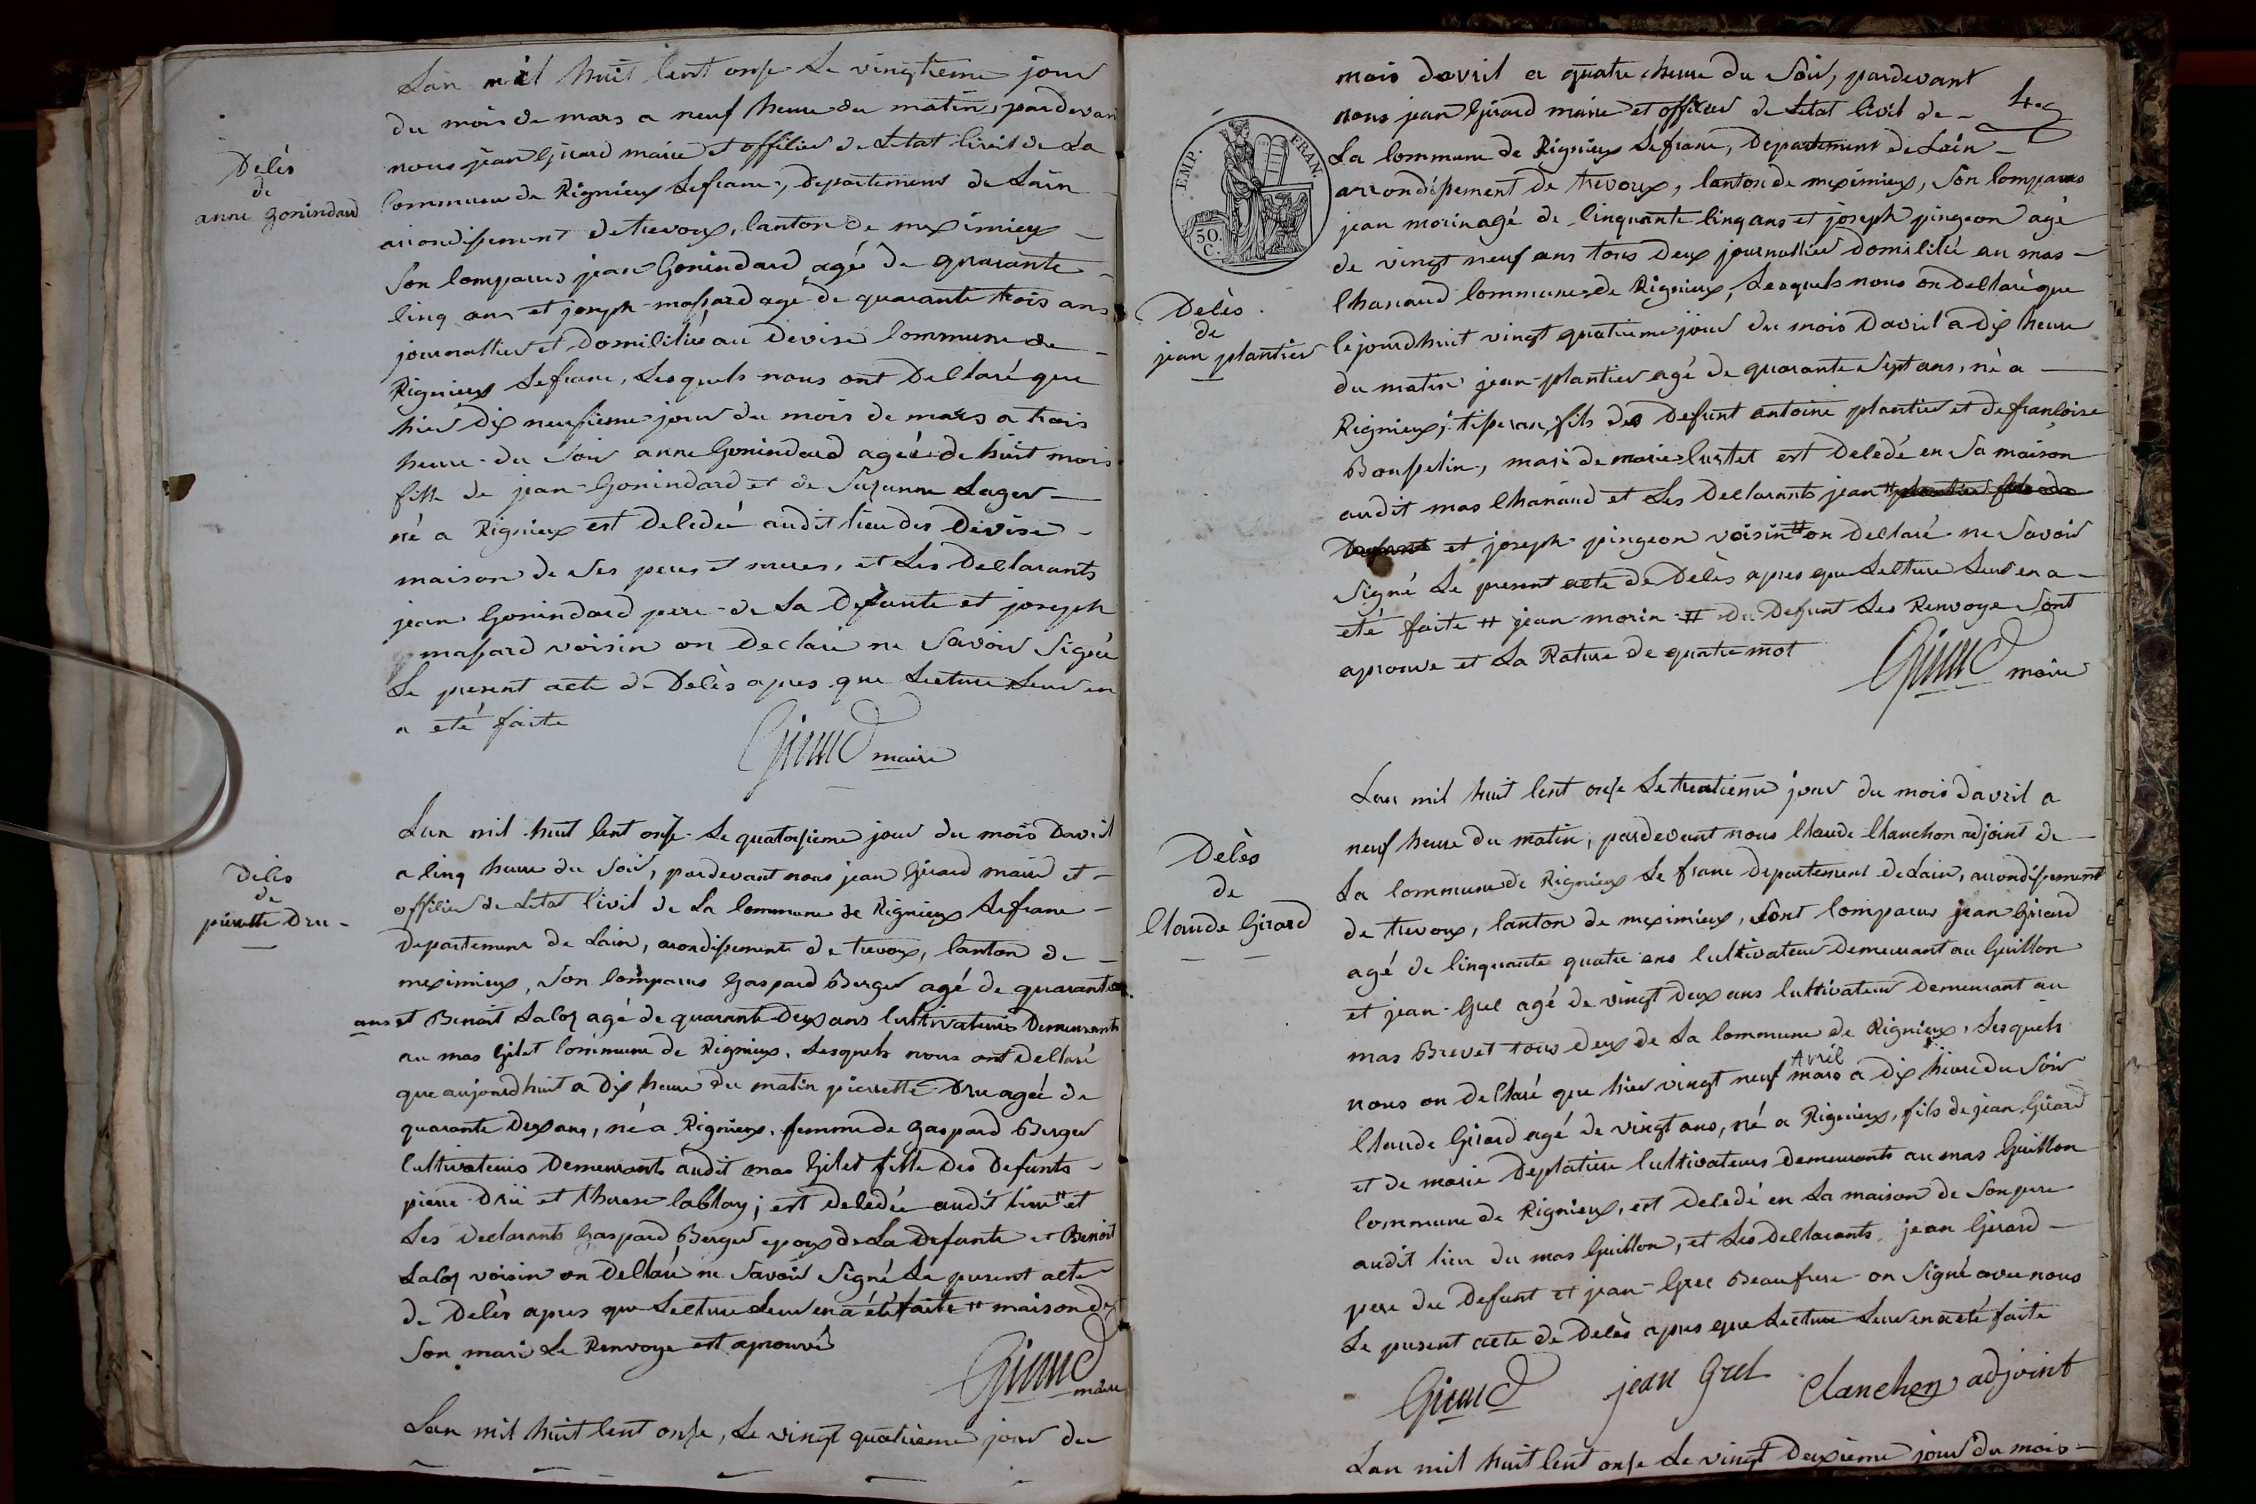 Délès
de
anne Gonindard
Lan mil huit Cent onse Le vingtieme jour
du mois de mars a neuf heure du matin, pardevan
nous jean Girard maire et officier de Letat Civil de La
Commune de Rignieux Lefranc, departement de Lain
arrondisement de trevoux, Canton de meximieux
Son Comparus jean Gonindard agé de quarante
Cinq ans et joseph massard agé de quarante trois ans
journallier et Domicilié au Devise Commune de
Rignieux Lefranc, Lesquels nous ont Declaré que
hier dix neufieme jour du mois de mars a trois
heure du Soir anne Gonindard ageé de huit mois
fille de jean Gonindard et de Suzanne Lager
né a Rignieux est Decedeé audit lieu des Devise
maison de Ses peres et meres, et Les Declarants
jean Gonindard pere de La Defunte et joseph
massard voisin on Declaré ne Savoir Signé
Le present acte de Délès apres que Lecture Leur en
a eté faite
Girard maire
Délès
de
pierrette Dru
Lan mil huit Cent onse Le quatorsieme jour du mois Davril
a Cinq heure du Soir, pardevant nous jean Girard maire et
officier de Letat Civil de La Commune de Rignieux Lefranc
Departement de Lain, arondisement de trevoux, Canton de
meximieux, Son Comparus Gaspard Berger agé de quarante
ans et Benoit Laloz agé de quarante Deux ans Cultivateurs Demeurants
au mas Gilet Commune de Rignieux, Lesquels nous ont Declaré
que aujourdhuit a Dix heure du matin pierrette Dru ageé de
quarante Deux ans, né a Rignieux, femme de Gaspard Berger
Cultivateurs Demeurants audit mas Gilet fille Des Defunts
pierre Dru et therese Lablay; est Decedeé audit lieu # et
Les Declarants Gaspard Berger epoux de La Defunte et Benoit
Laloz voisin on Declaré ne Savoir Signé Le present acte
de Délès apres que Lecture Leur en a été faite # maison de
Son mari Le Renvoye est aprouvé
Girard
maire
Lan mil huit Cent onse, Le vingt quatrieme jour du
mois davril a quatre heure du Soir, pardevant
nous jean Girard maire et officier de Letat Civil de
La Commune de Rignieux Lefranc, Departement de Lain
arrondisement de trevoux, Canton de meximieux, Son Comparus
jean morin agé de Cinquante Cinq ans et joseph pingeon agé
de vingt neuf ans tous Deux journallier Domicilié au mas
Chanaud Commune de Rignieux, Lesquels nous on Declaré que
Cejourdhuit vingt quatrieme jour du mois Davril a Dix heure
du matin jean plantier agé de quarante Sept ans, né a
Rignieux, fils des Defunt antoine plantier et de francoise
Bousselin, mari de marie Curtet est Decedé en Sa maison
audit mas Chanaud et Les Declarants jean # plantier fils de
Defunt et joseph pingeon voisin # on Declaré ne Savoir
Signé Le present acte de Délès apres que Lecture Leur en a
eté faite # jean morin # du Defunt Les Renvoye Sont
aprouve et La Rature de quatre mot
Girard maire
EMP. FRAN.
50.
C.
Délès
de
jean plantier
Délès
de
Claude Girard
Lan mil huit Cent onse Le trentieme jour du mois davril a
neuf heure du matin, pardevant nous Claude Clanchon adjoint de
La Commune de Rignieux Le franc departement de Lain, arrondisement
de trevoux, Canton de meximieux, Sont Comparus jean Girard
agé de Cinquante quatre ans Cultivateur Demeurant au Guillon
et jean Grel agé de vingt Deux ans Cultivateur Demeurant au
mas Brevet tous deux de La Commune de Rignieux, Lesquels
nous on Declaré que hier vingt neuf mars Avril a dix heure du Soir
Claude Girard agé de vingt ans, né a Rignieux, fils de jean Girard
et de marie Deplatiere Cultivateurs Demeurants au mas Guillon
Commune de Rignieux, est Decedé en La maison de Son pere
audit lieu du mas Guillon, et Les Declarants jean Girard
pere du Defunt et jean Grel Beaufrere on Signé avec nous
Le present acte de Délès apres que Lecture Leur en a eté faite
Girard jean Grel Clanchon adjoint
Lan mil huit Cent onse Le vingt Deuxieme jour du mois